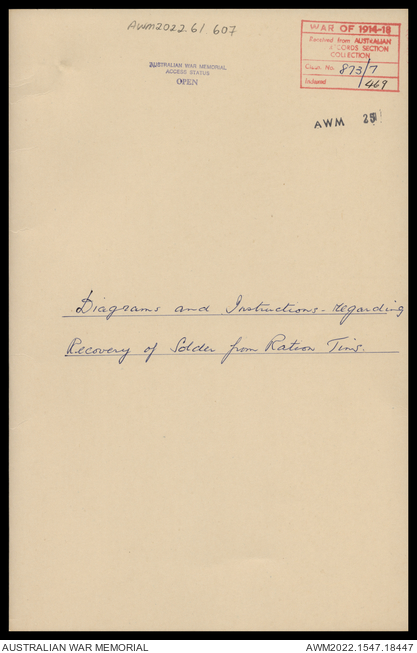 AWM2022.61 607
WAR OF 1914-18
Received from AUSTRALIAN
RECORDS SECTION
COLLECTION
Class No. 873/7
Indexed 469
AUSTRALIAN WAR MEMORIAL
ACCESS STATUS
OPEN
AWM 25
Diagrams and Instructions - regarding
Recovery of Solder from Ration Tins.
AUSTRALIAN WAR MEMORIAL
AWM2022.1547.18447